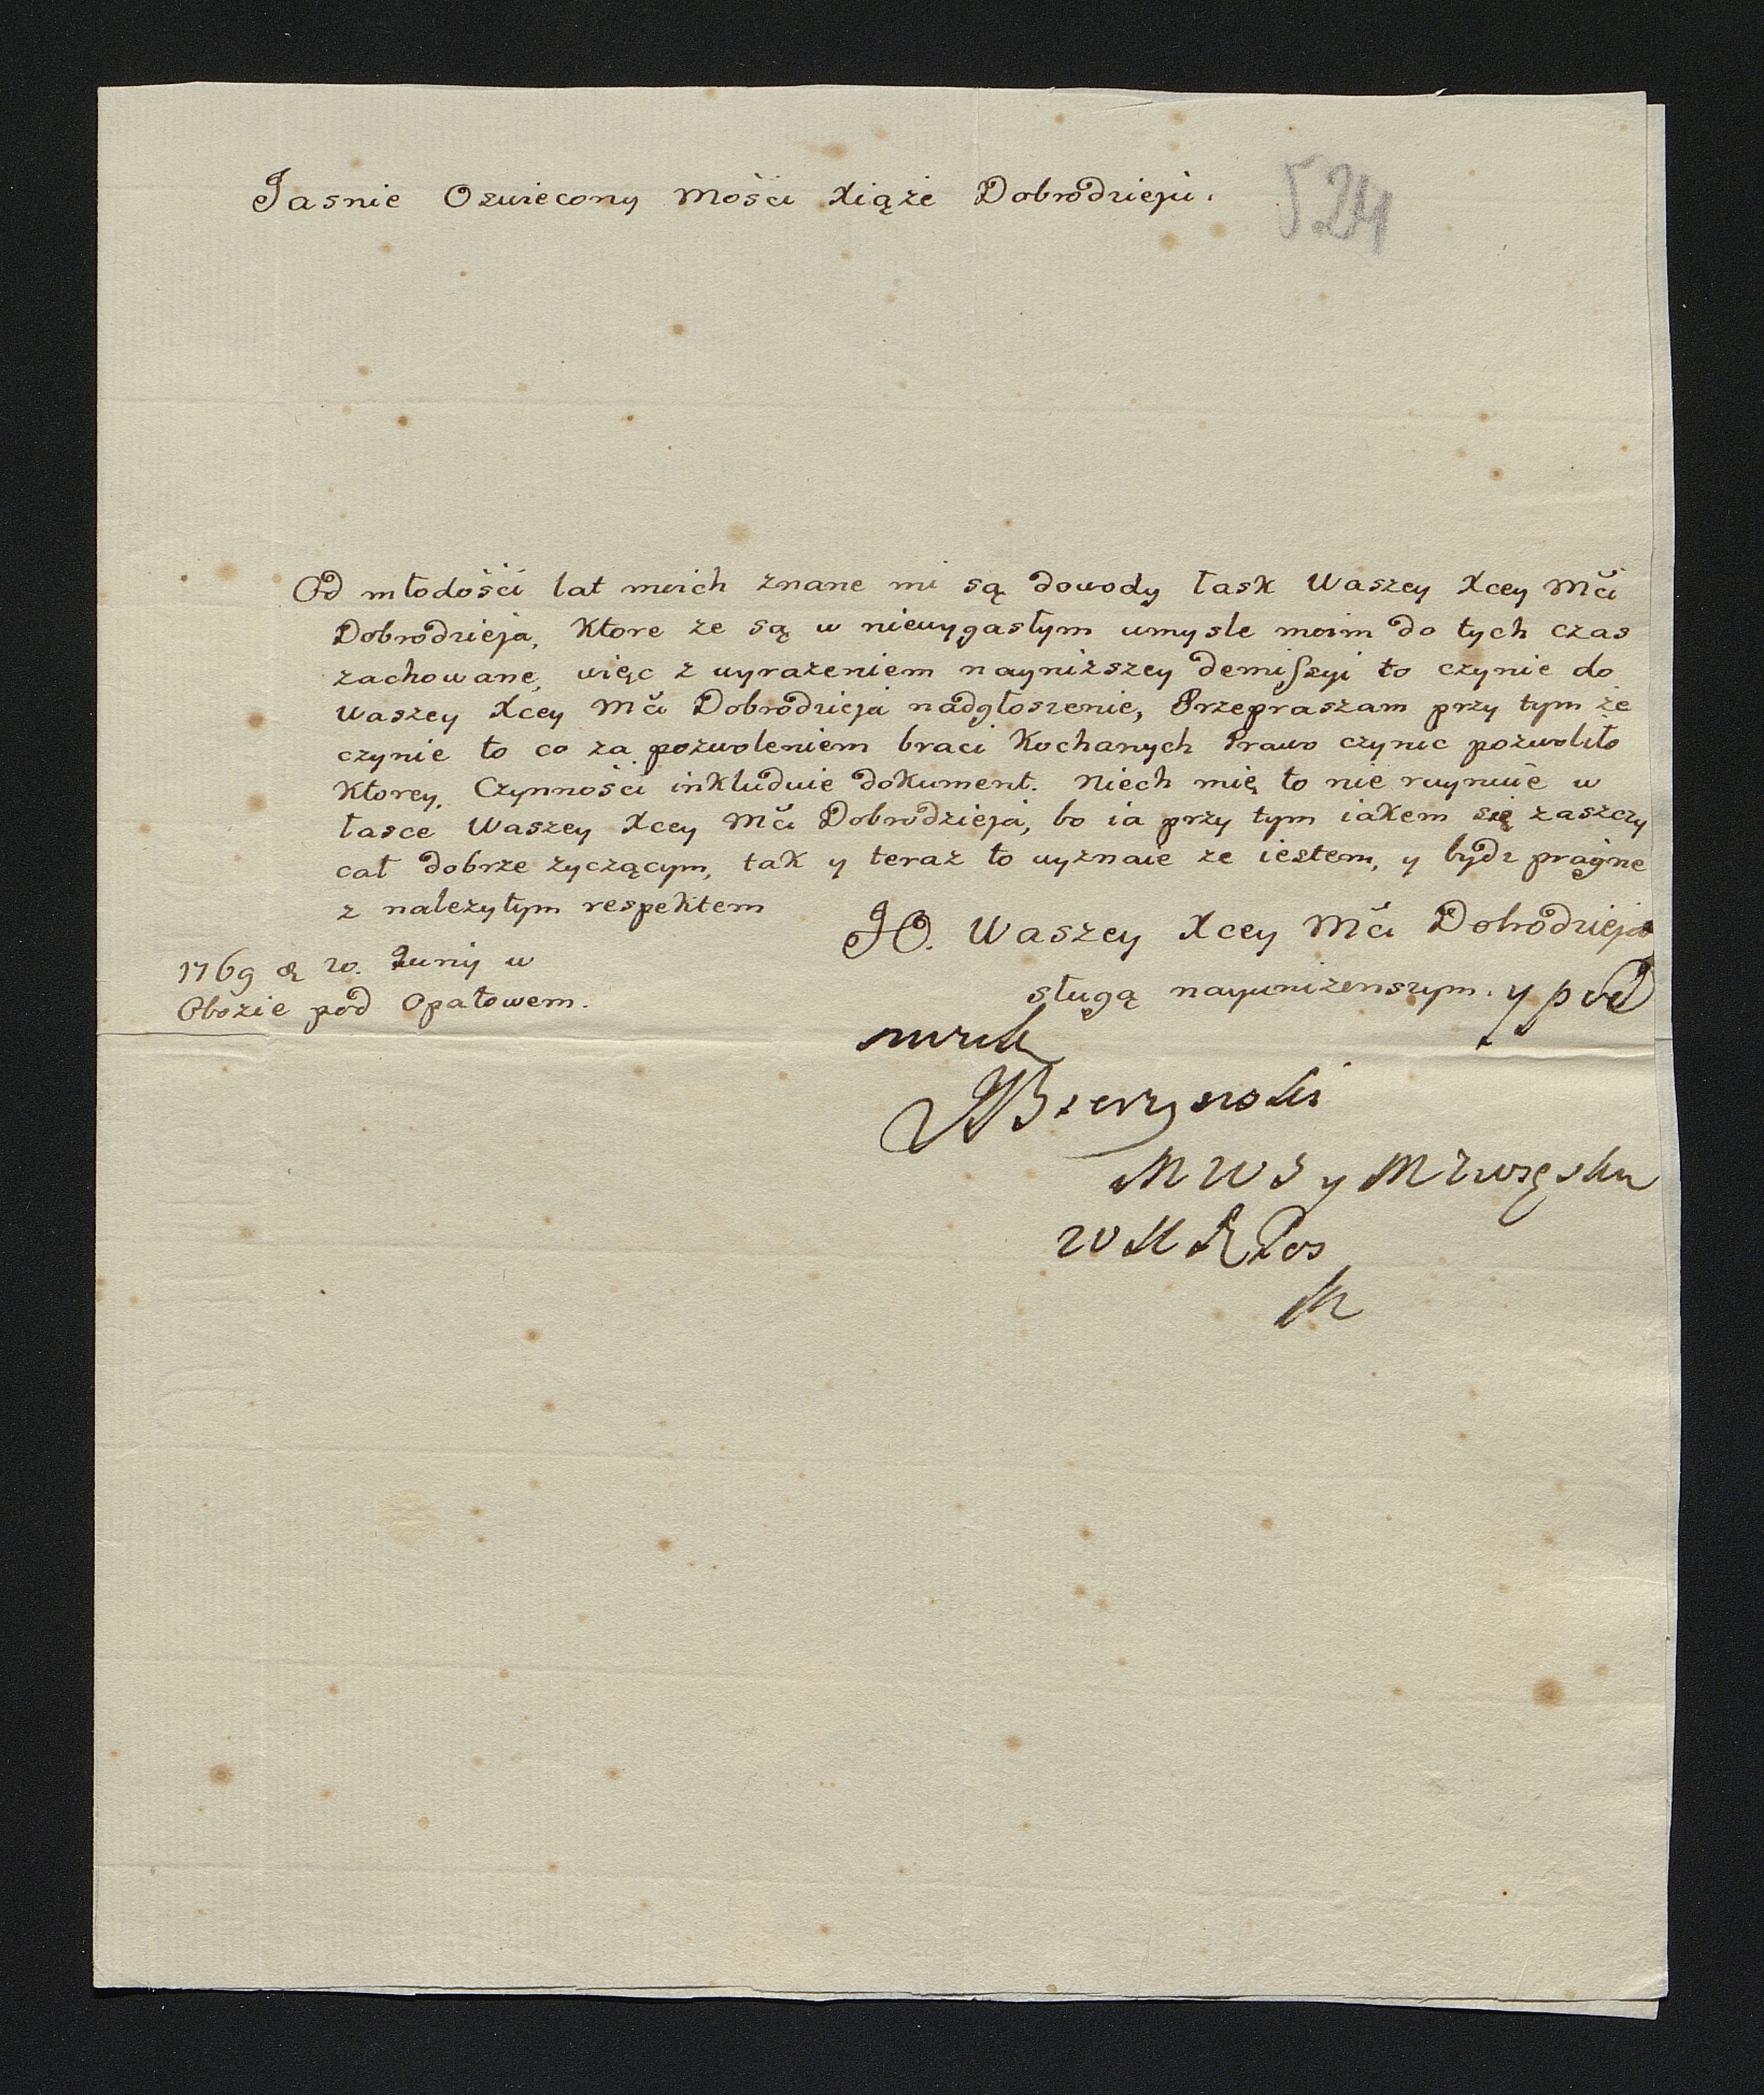 Jasnie Oswiecony Mości Xiąże Dobrodzieju.
524
Od młodości lat moich znane mi są dowody łask Waszey Xcey Mći
Dobrodzieja, Ktore ze są w niewygasłym umysle moim do tych czas
zachowane, więc z wyrażeniem nayniższey demissyi to czynie do
Waszey Xcey Mći Dobrodzieja nadgłoszenie, Przepraszam przy tym że
czynie to co za pozwoleniem braci Kochanych Prawo czynic pozwoliło
Ktorey. Czynności inkluduie dokument. Niech mię to nie ruynuie w
łasce Waszey Xcey Mći Dobrodzieja, bo ia przy tym iakem się zaszczy
cał dobrze zyczącym, tak y teraz to wyznaie ze iestem, y bydz pragne
z nalezytym respektem
JO. Waszey Xcey Mći Dobrodzieja
1769 d 20. Juny w
Obozie pod Opatowem.
sługą nayunizenszym. y pod
Bierzynski
M W S y M